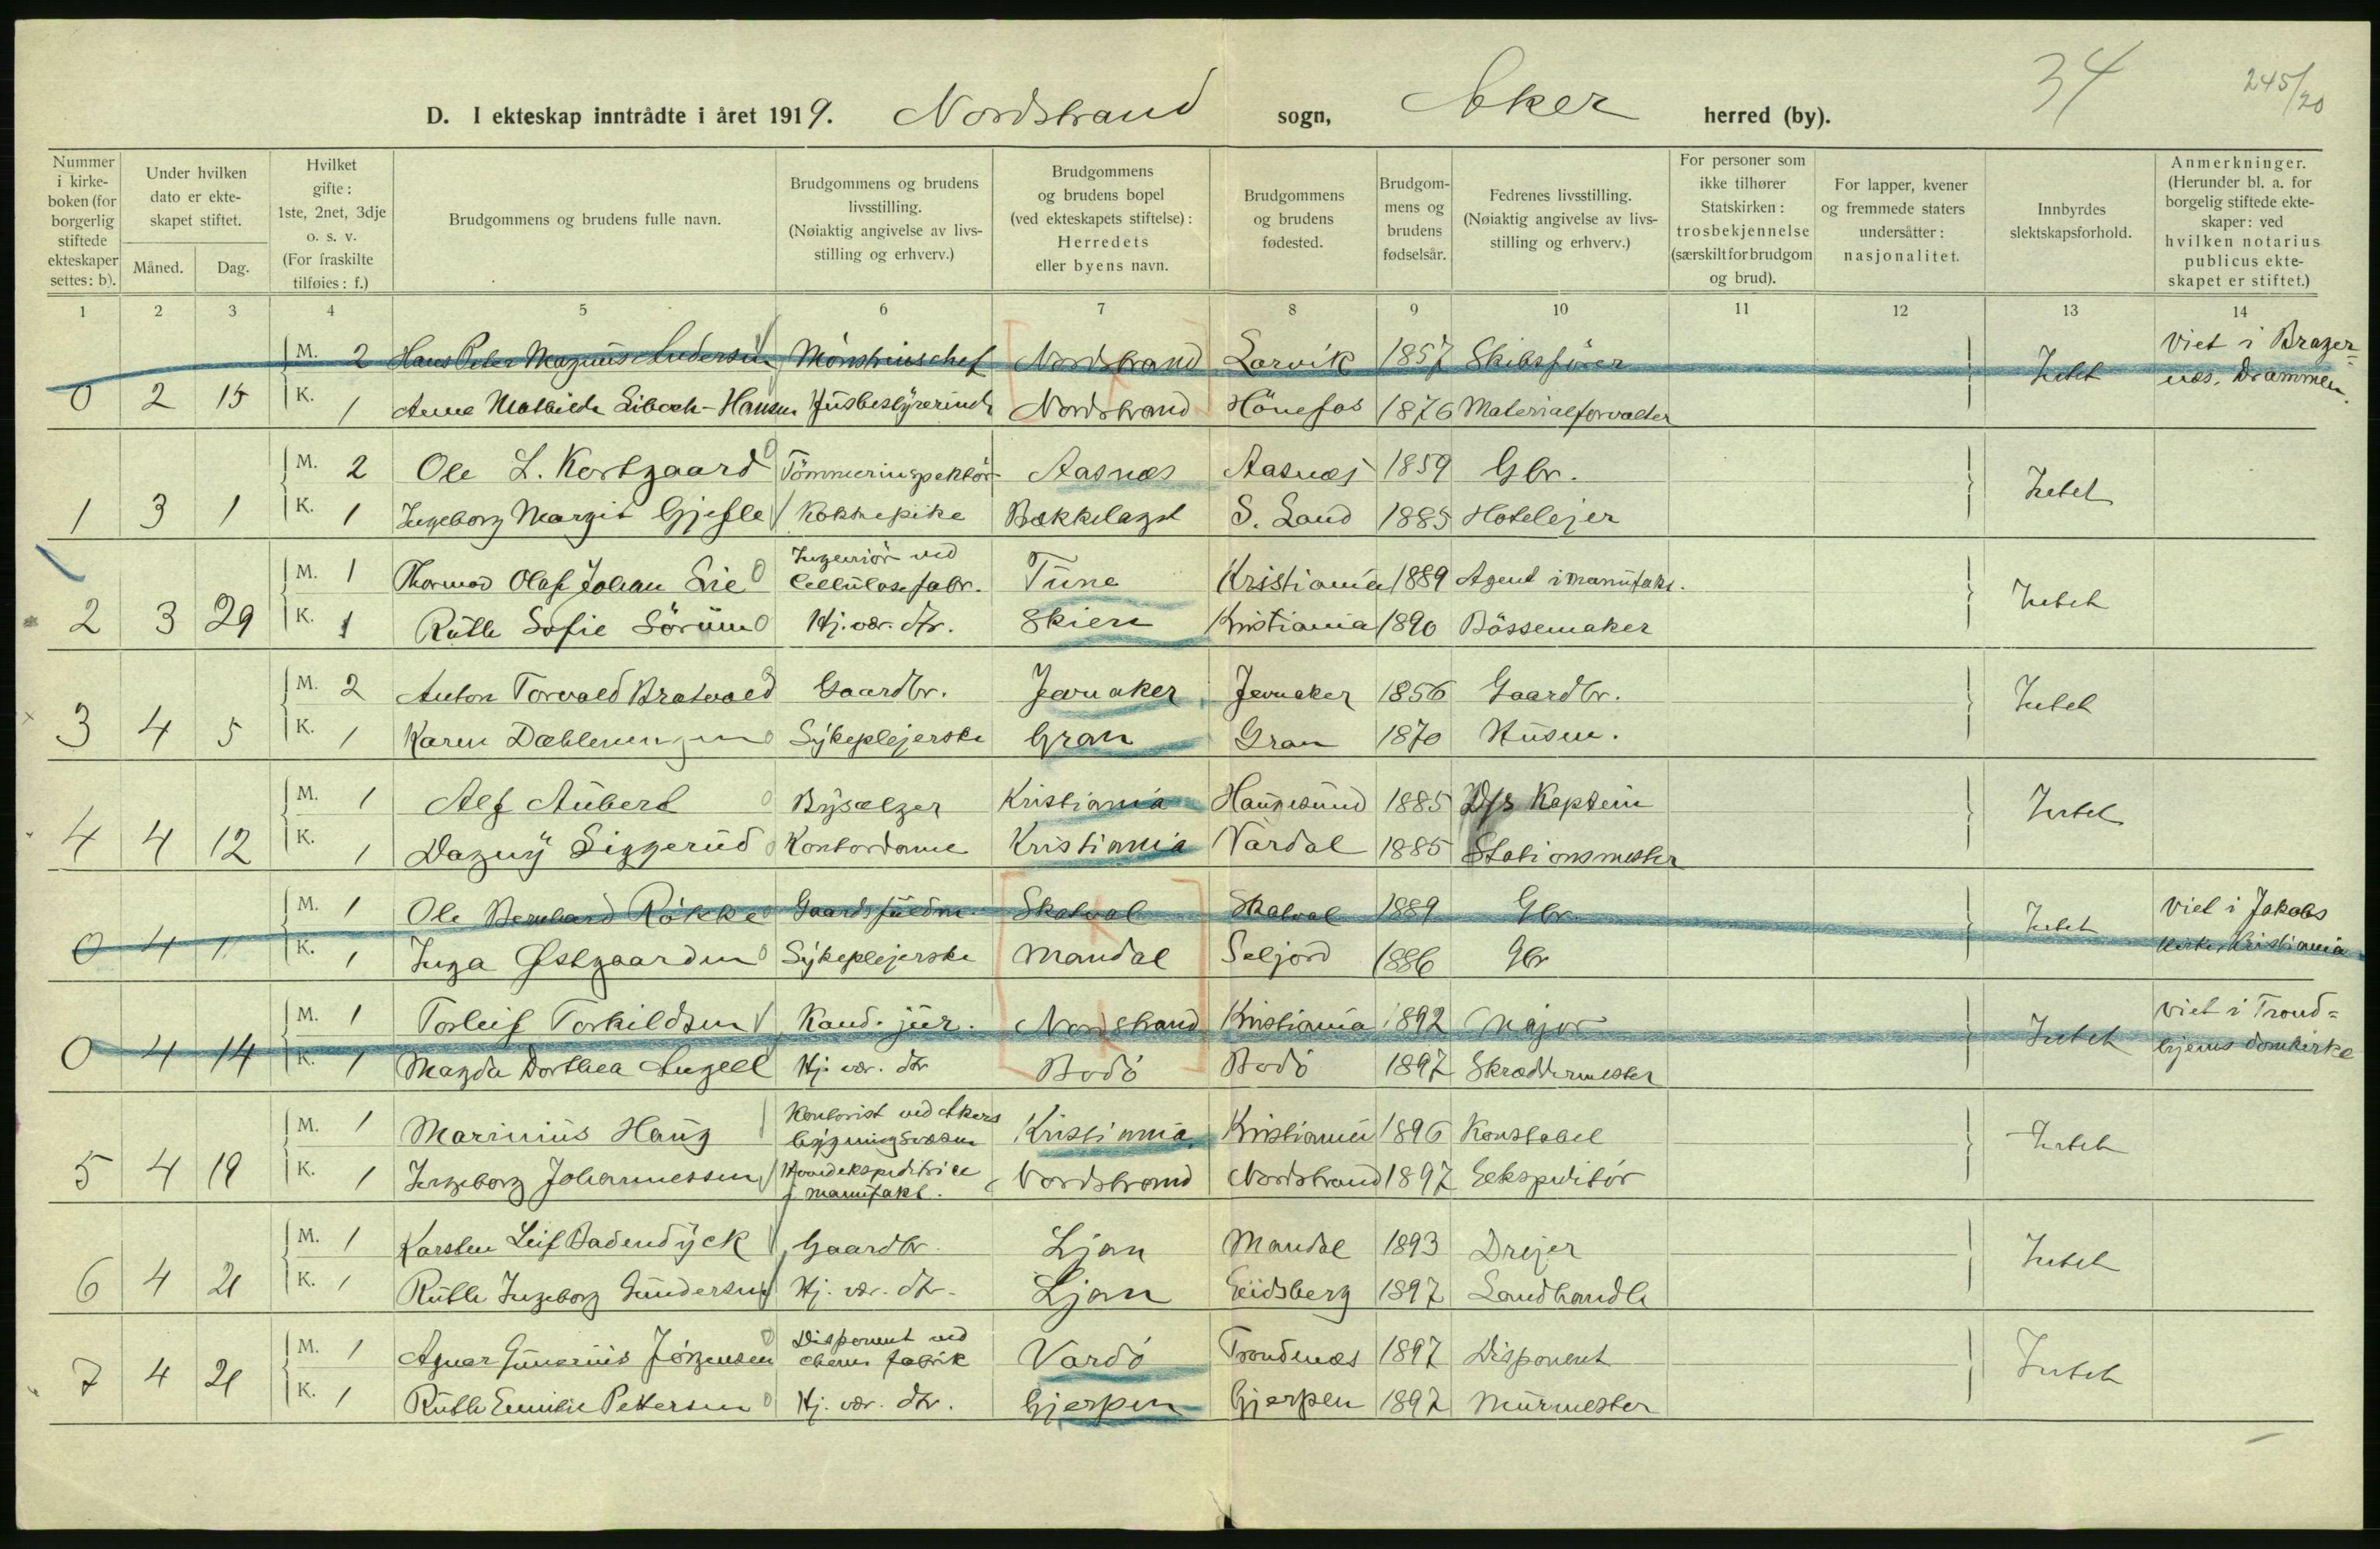 34
245/20
D. I ekteskap inntrådte i året 1919. Nordstrand sogn, Aker herred (by).
Nummer i kirkeboken (for borgerlig stiftede ekteskaper settes: b).
Under hvilken dato er ekteskapet stiftet.
Måned. Dag.
Hvilket gifte: 1ste, 2net, 3dje o. s. v. (For fraskilte tilføies: f.)
Brudgommens og brudens fulle navn.
Brudgommens og brudens livsstilling. (Nøiaktig angivelse av livsstilling og erhverv.)
Brudgommens og brudens bopel (ved ekteskapets stiftelse): Herredets eller byens navn.
Brudgommens og brudens fødested.
Brudgommens og brudens fødselsår.
Fedrenes livsstilling. (Nøiaktig angivelse av livsstilling og erhverv.)
For personer som ikke tilhører Statskirken: trosbekjennelse (særskilt for brudgom og brud).
For lapper, kvener og fremmede staters undersåtter: nasjonalitet.
Innbyrdes slektskapsforhold.
Anmerkninger. (Herunder bl. a. for borgelig stiftede ekteskaper: ved hvilken notarius publicus ekteskapet er stiftet.)
1 2 3 4 5 6 7 8 9 10 11 12 13 14
M. 2 Hans Peter Magnus Andersen Mönstringschef Nordstrand Larvik 1857 Skibsförer Intet Viet i Bragernæs, Drammen.
0 2 15 K. 1 Anna Mathilde Liboch-Hansen Husbestyrerinde Nordstrand Hönefos 1876 Materialforvalter
M. 2 Ole L. Kortgaard Tömmerinspektör Aasnæs Aasnæs 1859 Gbr. Intet
1 3 1 K. 1 Ingeborg Margit Gjefle Kokkepike Bækkelaget S. Land 1885 Hotelejer
M. 1 Thormod Olaf Johan Lie Ingeniör ved Cellulosefabr. Tune Kristiania 1889 Agent i manufakt. Intet
2 3 29 K. 1 Ruth Sofie Sörum Hj. vær. dtr. Skien Kristiania 1890 Bössemaker
M. 2 Anton Torvald Bratvold Gaardbr. Jevnaker Jevnaker 1856 Gaardbr. Intet
3 4 5 K. 1 Karen Dæhlenengen Sykeplejerske Gran Gran 1870 Husm.
M. 1 Alf Aubert Bysælger Kristiania Haugesund 1885 D/s Kaptein Intet
4 4 12 K. 1 Dagny Siggerud Kontordame Kristiania Vardal 1885 Stationsmester
M. 1 Ole Bernhard Rökke Gaardsfuldm. Skatval Skatval 1889 Gbr. Intet Viet i Jakobs kirke, Kristiania
0 4 1 K. 1 Inga Østgaarden Sykeplejerske Mandal Seljord 1886 Gbr
M. 1 Torleif Torkildsen Kand. jur. Nordstrand Kristiania 1892 Major Intet Viet i Trondhjems domkirke
0 4 14 K. 1 Magda Dorthea Angell Hj. vær. dtr Bodö Bodö 1897 Skræddermester
M. 1 Marinius Haug Kontorist ved Akers bygningsvæsen Kristiania Kristiania 1896 Konstabel Intet
5 4 19 K. 1 Ingeborg Johannessen Hovedekspeditrice i manufakt. Nordstrand Nordstrand 1897 Eekspeditör
M. 1 Karsten Leif Badendyck Gaardbr. Ljan Mandal 1893 Drejer Intet
6 4 21 K. 1 Ruth Ingeborg Gundersen Hj. vær. dtr. Ljan Eidsberg 1897 Landhandle
M. 1 Agnar Gunerius Jörgensen Disponent ved chem. fabrik Vardö Trondenæs 1897 Disponent Intet
7 4 21 K. 1 Ruth Emilie Pettersen Hj. vær. dtr. Gjerpen Gjerpen 1897 Murmester